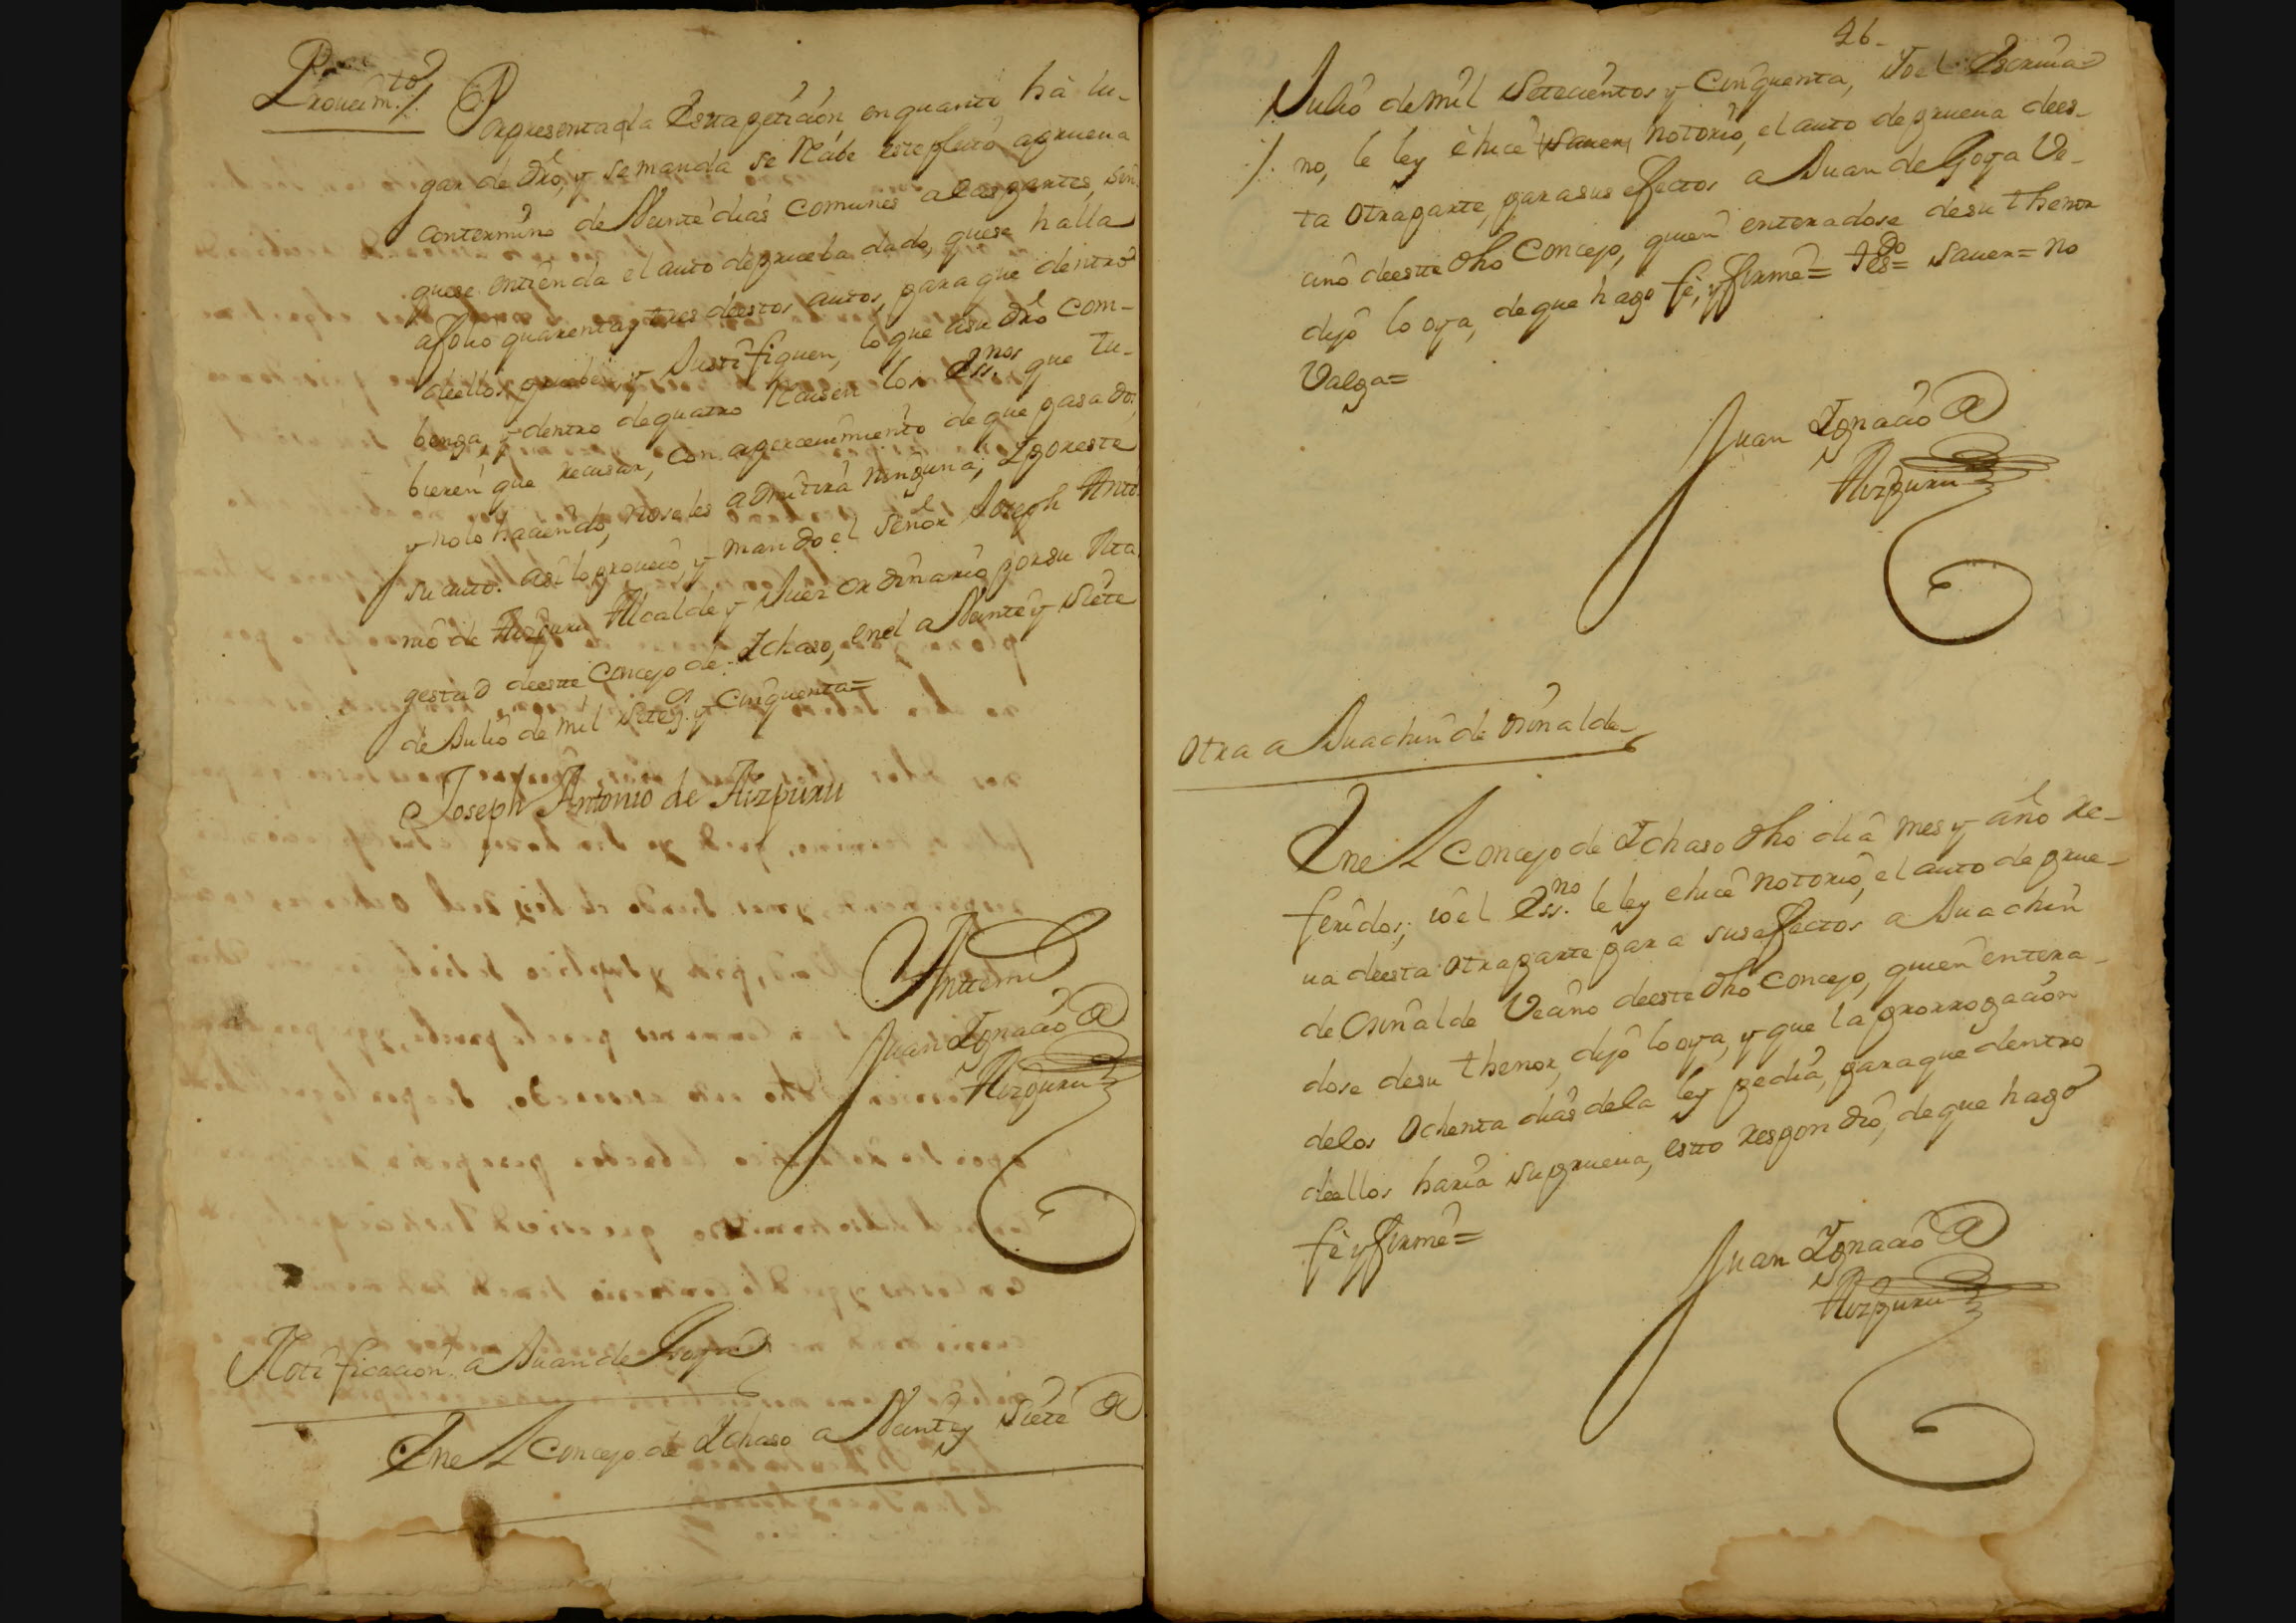 Proueim.to /.
Por presentada Esta petizion, en quanto hà lu-
gar de dro, y se manda se Rẑábe este pleito a prueua
con termino de Veinte dias comunes a las partes, sin
que se entienda el auto de prueba dado, que se halla
a folio quarenta y tres de estos autos, para que dentro
de ellos prueben, y Justifiquen, lo que à su dro com-
benga, y dentro de quatro Rausen los Ess.nos que tu-
bieren que recusar, con aperceuimiento de que pasados,
y no lo haciendo, no se les admitirà ninguna; Y por este
su auto. asi lo proueiò, y mandò el señor Joseph Anto
nio de Aizpuru Alcalde y Juez ordinario por su Ma
gestad de este Concejo de Ichaso, en el a Veinte y Siete
de Julio de mil setez.s y cinquenta=
Joseph Antonio de Aizpuru
Anttemi
Juan Ignacio de
Aizpuru
Notificacion a Juan de Goya
En el Concejo de Ichaso a Veinte y Siete de
46-
Julio de mil setecientos y Cinquenta, Yo el Escriua-
/. no, le ley è hice sauer notorio, el auto de prueua de es-
ta otra parte, para sus efectos a Juan de Goya Ve-
cino de este dho Concejo, quien enteradose de su thenor
dijò lo oya, de que hago fè, y firmè= tes.do= sauer= no
Valga=
Juan Ignacio de
Aizpuru
Otra a Juachin de Osinalde
En el Concejo de Ichaso dho dia mes y año re-
feridos; io el Ess.no le ley e hice notorio, el auto de prue-
ua de esta otra parte para sus efectos a Juachin
de Osinalde Vecino de este dho Concejo, quien entera-
dose de su thenor, dijò lo oya, y que la prorrogacion
de los ochenta dias de la ley pedia, para que dentro
de ellos haria su prueua, esto respondiò, de que hago
fè y firmè=
Juan Ignacio de
Aizpuru